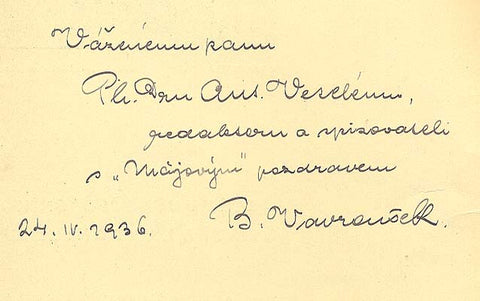 Váženému panu
Ph. Dru Ant. Veselému,
redaktoru a spisovateli
s „Májovým" pozdravem
24. IV. 1936. B. Vavroušek.